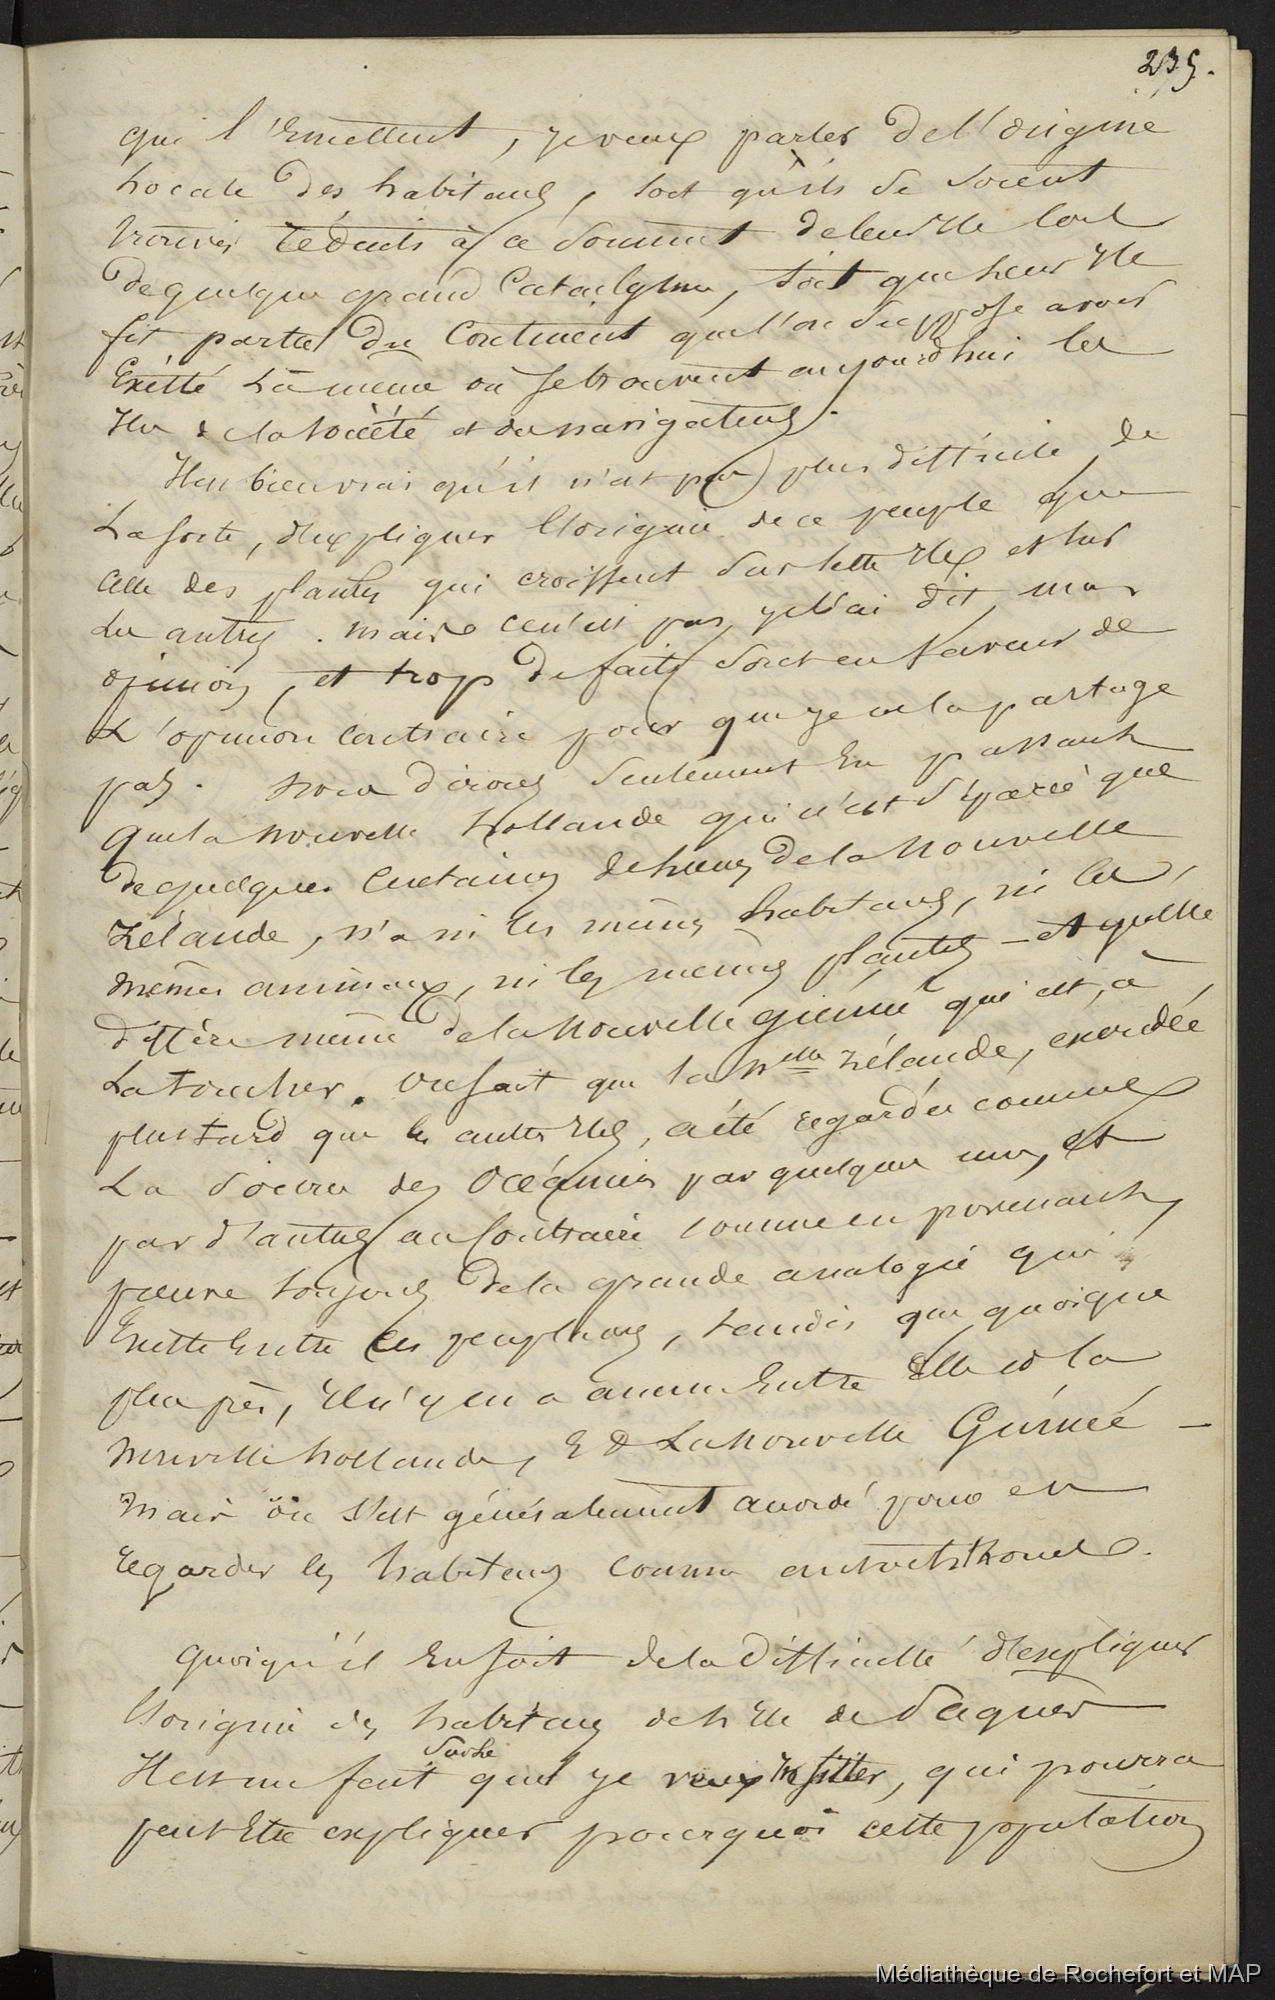 235.
qui l'émettent, je veux parler de l'origine
locale des habitans, soit qu'ils se soient
trouvés réduits à ce sommet de leur Ile lors
de quelque grand Cataclysme, soit que leur Ile
fit partie du Continent que l'on suppose avoir
Existé là même où se trouvent aujourd'hui les
Iles de la Société et des navigateurs.
Il est bien vrai qu'il n'est pas plus difficile, de
la sorte, d'expliquer l'origine de ce peuple que
celle des plantes qui croissent sur cette Ile et sur
les autres. mais ce n'est pas, je l'ai dit, mon
opinion, et trop de faits sont en faveur de
L'opinion contraire pour que je ne la partage
pas. nous dirons seulement En passant
que la nouvelle hollande qui n'est séparée que
de quelques Centaines de lieues de la Nouvelle
Zélande, n'a ni les mêmes habitans, ni les
mêmes animaux, ni les mêmes plantes - et qu'elle
diffère même de la Nouvelle guinée qui est, à
La toucher. Un fait que la Nlle Zélande,
plus tard que les autres Iles, a été regardée comme
La Source des Océaniens par quelques uns, et
par d'autres au Contraire comme en provenant,
preuve toujours de la grande analogie qui
Existe Entre les peuplades, tandis que quoique
plus près, Il n'y en a aucune Entre Elle et la
Nouvelle hollande, Et La Nouvelle Guinée -
mais on s'est généralement accordé pour en
regarder les habitans comme autochthones.
Quoiqu'il En soit de la Difficulté d'expliquer
l'origine des habitans de l'Ile de Pâques
Il est un fait que je veux, qui pourra
peut Etre expliquer pourquoi cette population
Médiathèque de Rochefort et MAP